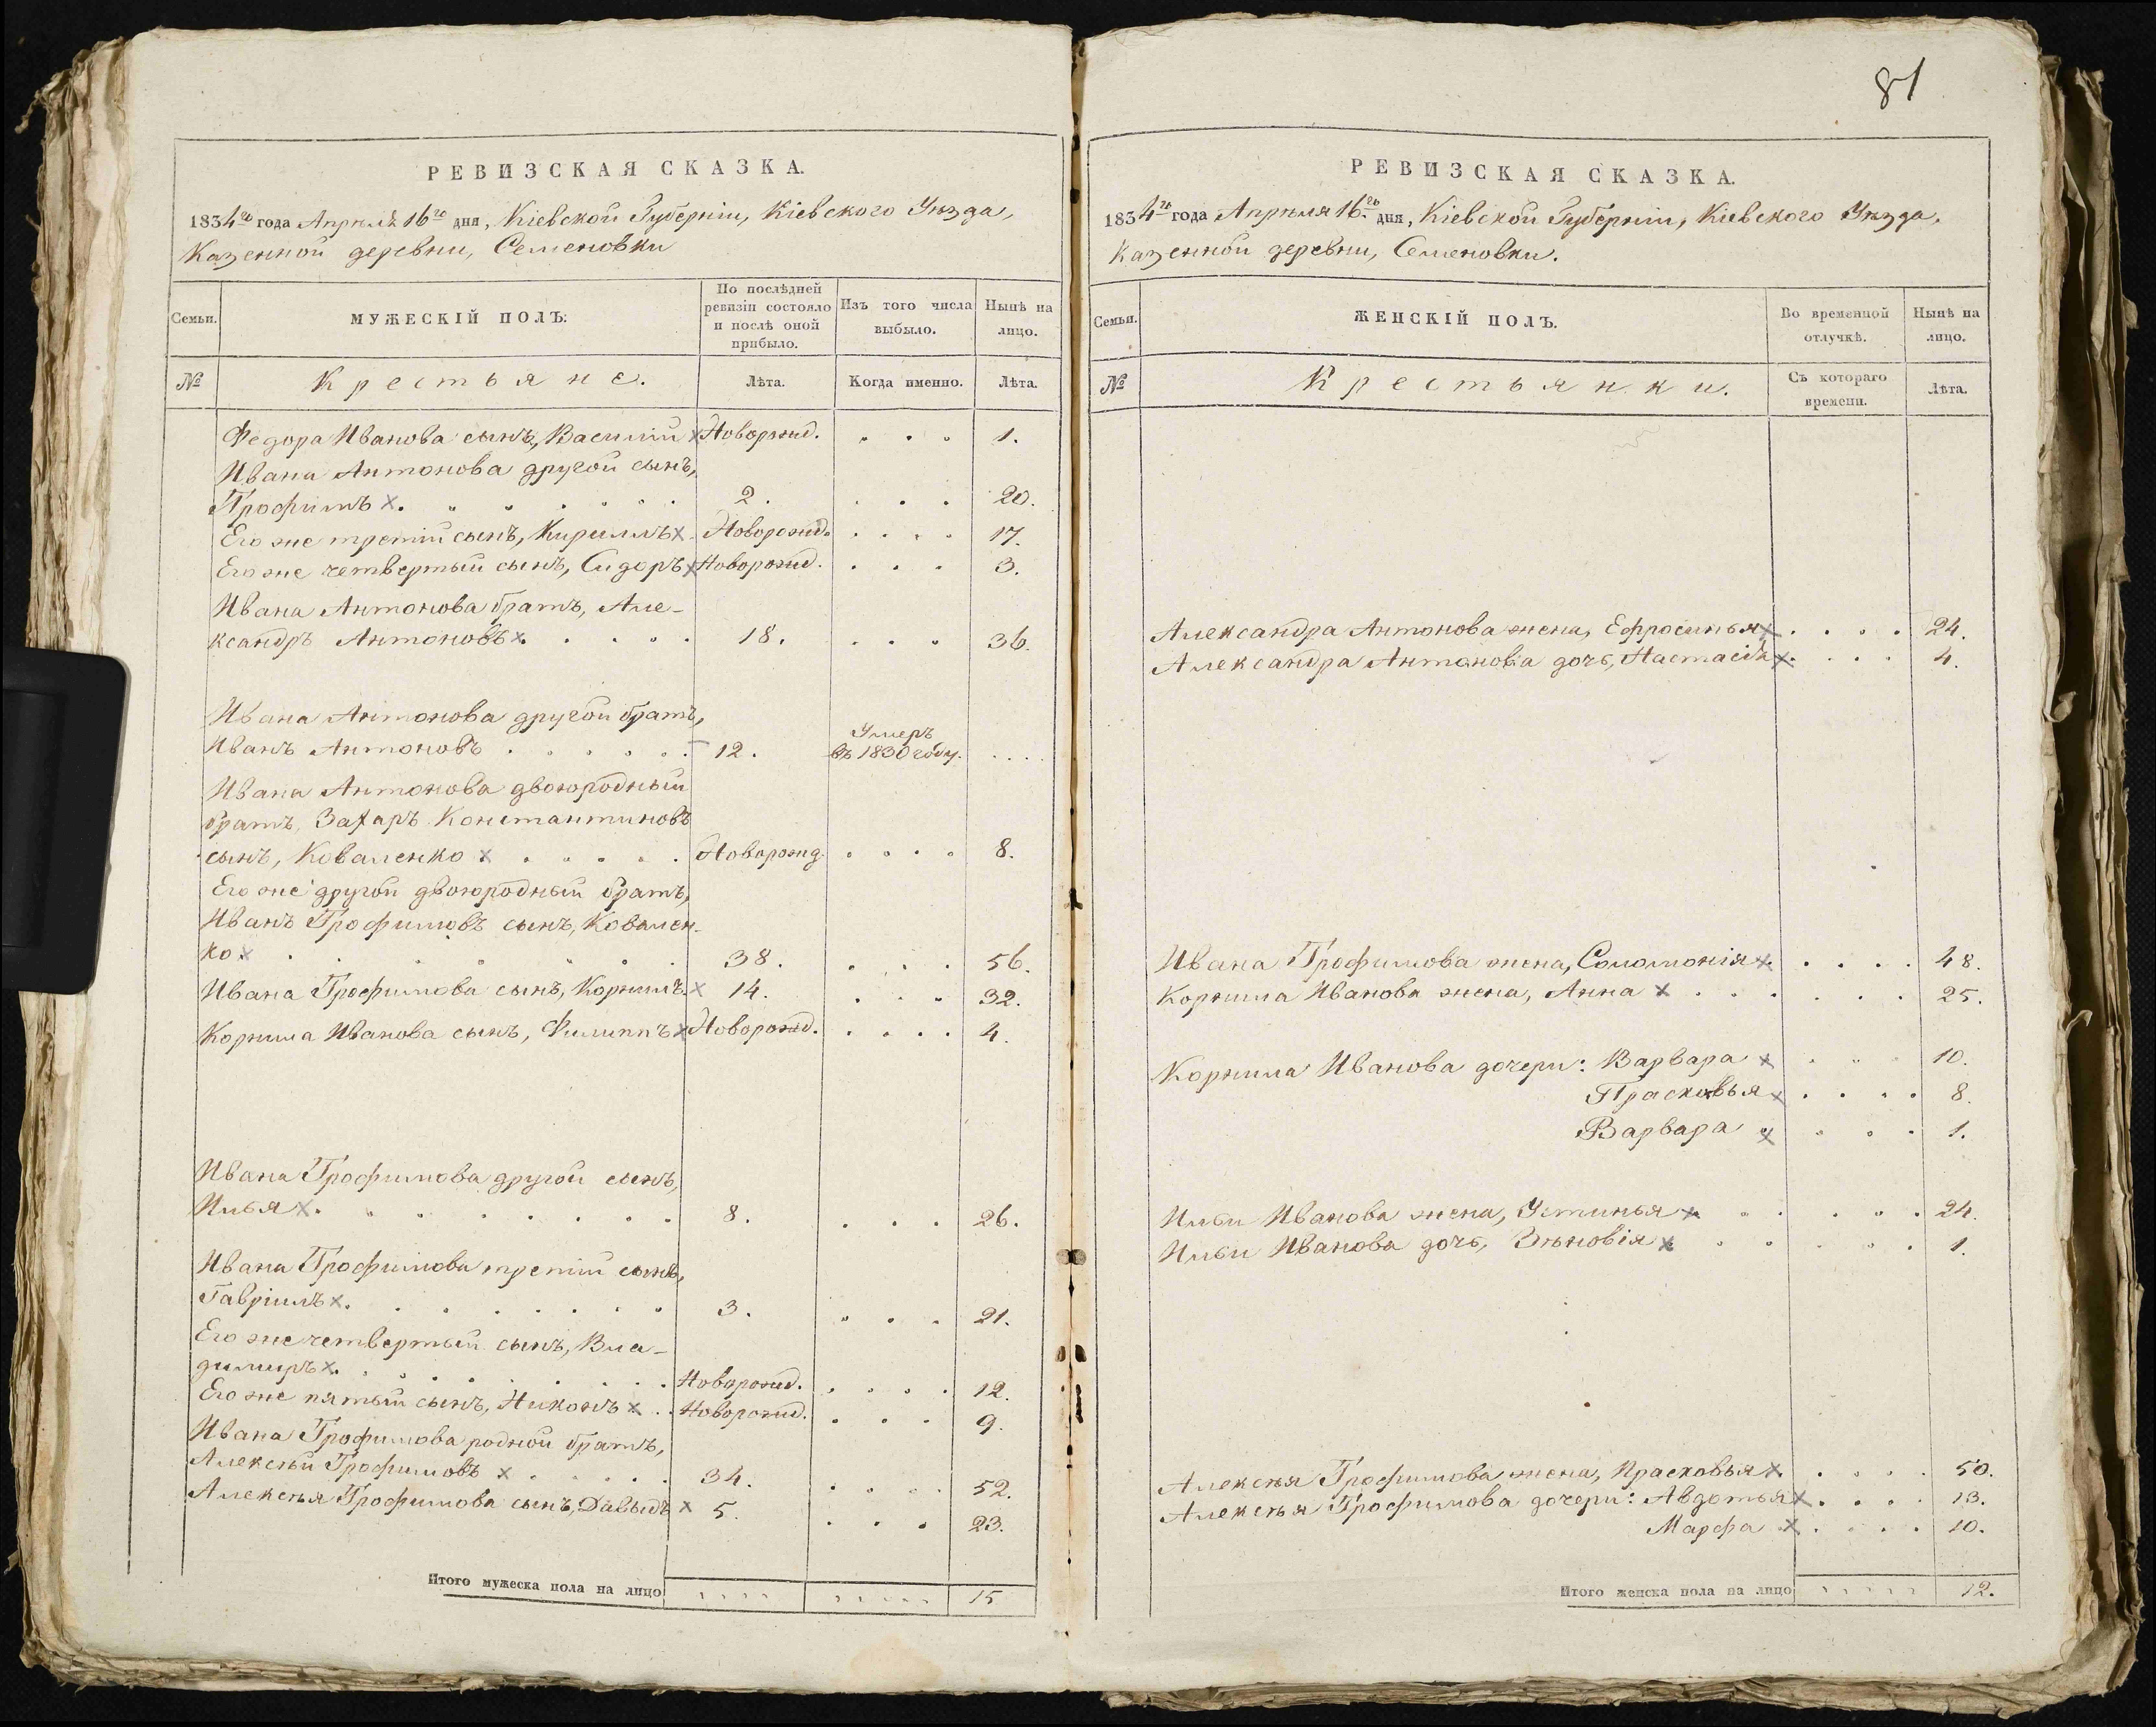 РЕВИЗСКАЯ СКАЗКА.
1834го года Апрѣля 16го дня, Кіевской Губерніи, Кіевского Уѣзда,
Казенной деревни, Семеновки
Семьи.
МУЖЕСКІЙ ПОЛЪ:
По послѣдней
ревизіи состояло
и послѣ оной
прибыло.
Изъ того числа
выбыло.
Нынѣ на
лицо.
№
Крестьяне.
Лѣта.
Когда именно.
Лѣта.
Федора Иванова сынъ, Василій х Новорожд. . . . 1.
Ивана Антонова другой сынъ,
Трофимъ х. . . . . . . 2. . . . 20.
Его же третій сынъ, Кириллъ х. Новорожд. . . . . 17.
Его же четвертый сынъ, Сидоръ х Новорожд. . . . 3.
Ивана Антонова братъ, Але-
ксандръ Антоновъ х. . . . . 18. . . . 36.
Ивана Антонова другой братъ,
Иванъ Антоновъ . . . . . . 12. Умеръ
въ 1830 году. . . . .
Ивана Антонова двоюродный
братъ, Захаръ Константиновъ
сынъ, Коваленко х . . . . . Новорожд. . . . . 8.
Его же другой двоюродный братъ,
Иванъ Трофимовъ сынъ, Ковален-
ко х . . . . . . 38. . . . . 56.
Ивана Трофимова сынъ, Корнилъ. х 14. . . . 32.
Корнила Иванова сынъ, Филиппъ х Новорожд. . . . . 4.
Ивана Трофимова другой сынъ,
Илья х. . . . . . . . 8. . . . 26.
Ивана Трофимова третій сынъ,
Гавріилъ х. . . . . . . . 3. . . . 21.
Его же четвертый сынъ, Вла-
димиръ х. . . . . . . . Новорожд. . . . . 12.
Его же пятый сынъ, Никонъ х . . Новорожд. . . . 9.
Ивана Трофимова родной братъ,
Алексѣй Трофимовъ х . . . . . 34. . . . . 52.
Алексѣя Трофимова сынъ, Давыдъ х 5. . . . 23.
Итого мужеска пола на лицо 15
81
РЕВИЗСКАЯ СКАЗКА.
1834го года Апрѣля 16го дня, Кіевской Губерніи, Кіевского Уѣзда,
Казенной деревни, Семеновки.
Семьи.
ЖЕНСКІЙ ПОЛЪ.
Во временной
отлучкѣ.
Нынѣ на
лицо.
№
Крестьянки.
Съ котораго
времени.
Лѣта.
Александра Антонова жена, Ефросинья х . . . . 24.
Александра Антонова дочь, Настасія х. . . . 4.
Ивана Трофимова жена, Соломонія х . . . . 48.
Корнила Иванова жена, Анна х . . . . . . 25.
Корнила Иванова дочери: Варвара х . . . 10.
Прасковья х . . . . 8.
Варвара х . . . 1.
Ильи Иванова жена, Устинья х . . . . . 24.
Ильи Иванова дочь, Зѣновія х . . . . . 1.
Алексѣя Трофимова жена, Прасковья х. . . . . 50.
Алексѣя Трофимова дочери: Авдотья х . . . . 13.
Марфа х . . . . 10.
Итого женска пола на лицо 12.